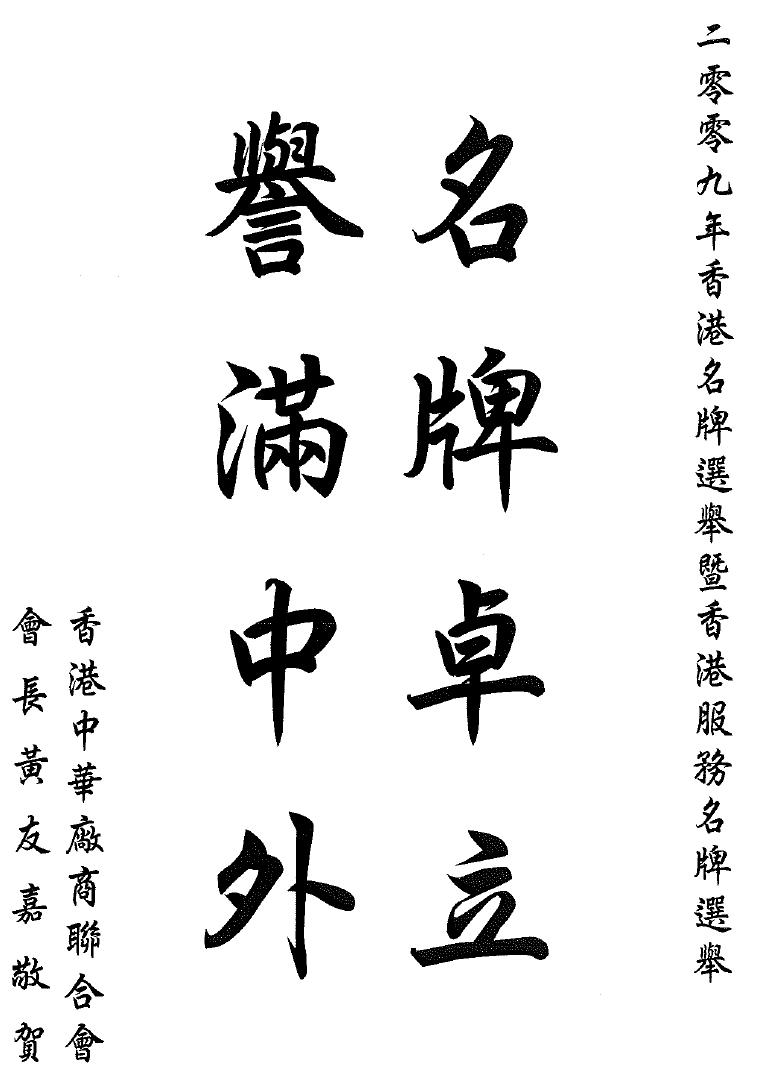 二零零九年香港名牌選舉暨香港服務名牌選舉
名牌卓立
譽滿中外
香港中華廠商聯合會
會長黃友嘉敬賀